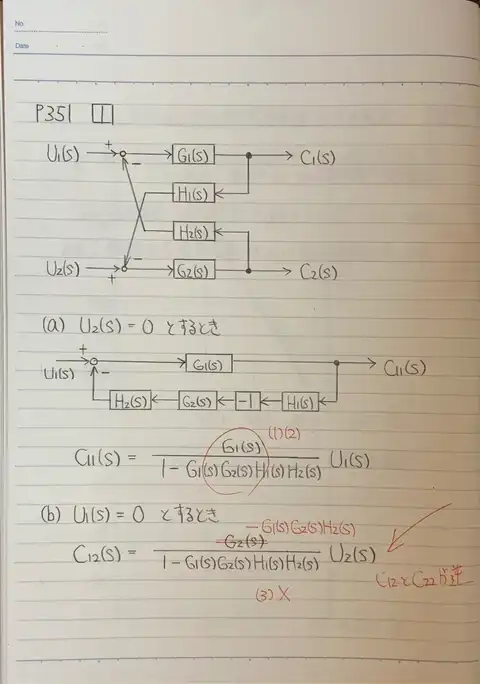 No.
Date
P351 1
U1(s) + − G1(s) C1(s)
H1(s)
H2(s)
U2(s) + − G2(s) C2(s)
(a) U2(s) = 0 とするとき
U1(s) + − G1(s) C11(s)
H2(s) G2(s) −1 H1(s)
(1)(2)
C11(s) = G1(s) / 1 − G1(s)G2(s)H1(s)H2(s) U1(s)
(b) U1(s) = 0 とするとき
−G1(s)G2(s)H2(s)
C12(s) = G2(s) / 1 − G1(s)G2(s)H1(s)H2(s) U2(s)
C12とC22が逆
(3) X